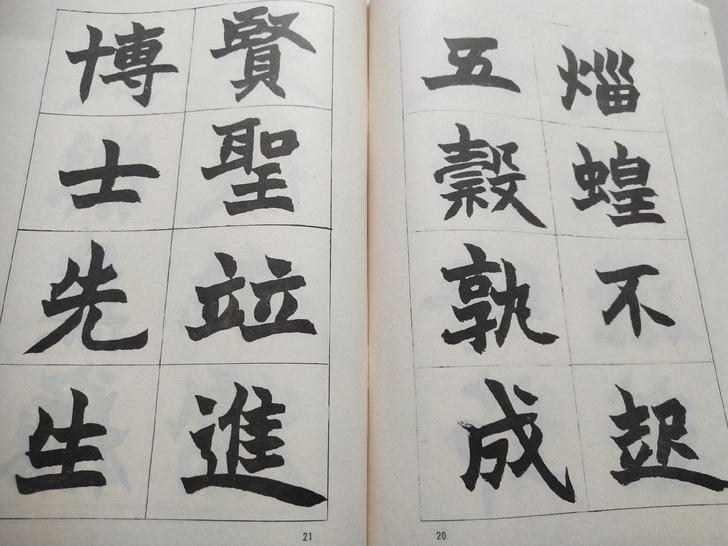 蝗不起
五穀孰成
20
賢聖竝進
博士先生
21